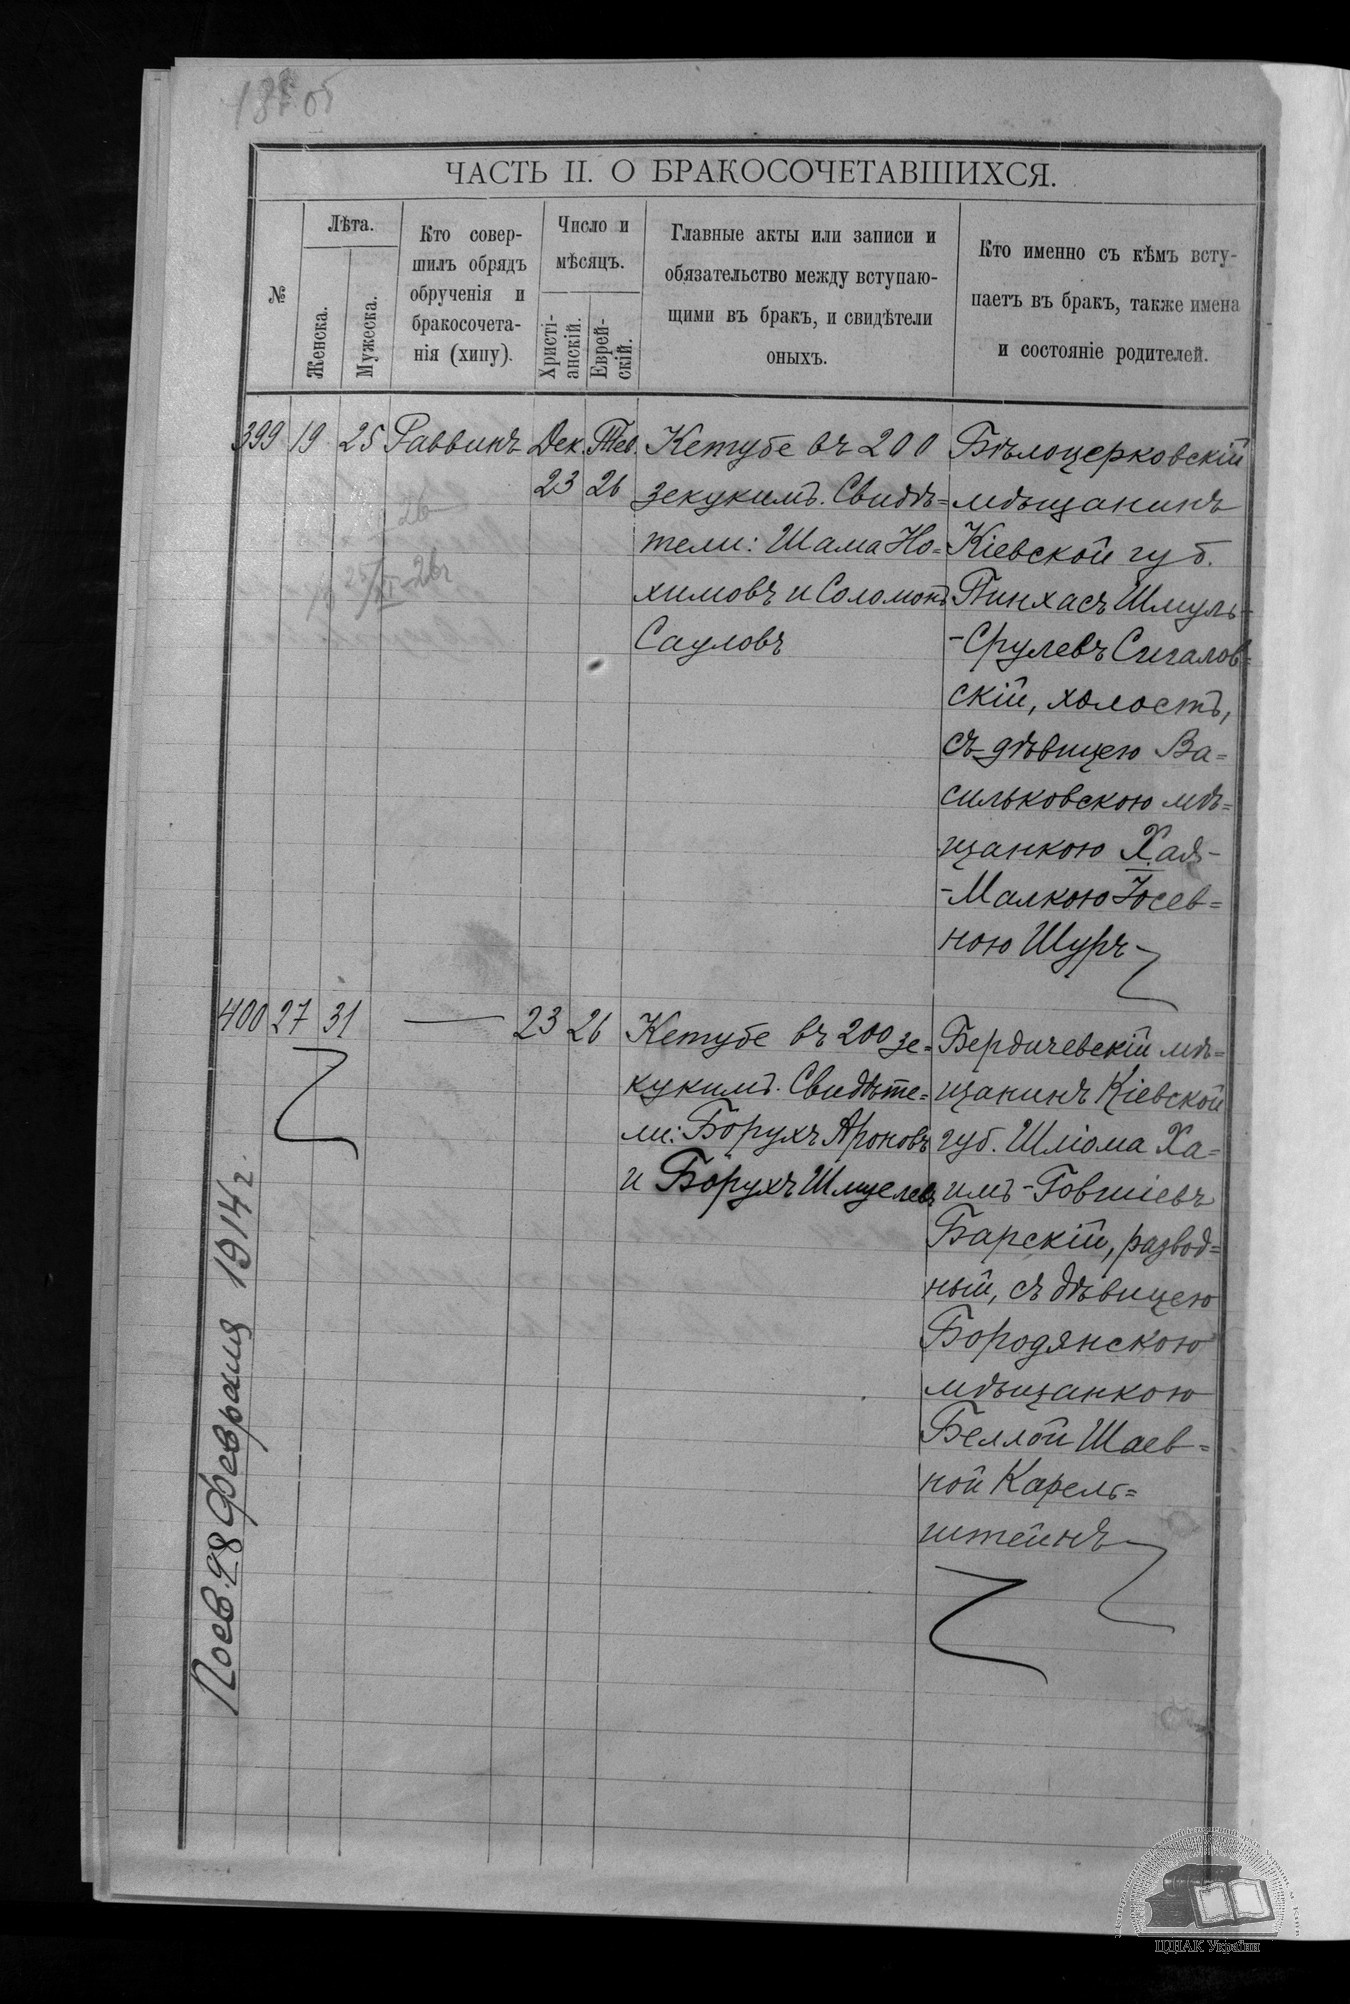 ЧАСТЬ II. О БРАКОСОЧЕТАВШИХСЯ.
№
Лѣта.
Женска.
Мужеска.
Кто совер-
шилъ обрядъ
обрученія и
бракосочета-
нія (хипу).
Число и
мѣсяцъ.
Христі-
анскій.
Еврей-
скій.
Главные акты или записи и
обязательство между вступаю-
щими въ брак, и свидѣтели
оныхъ.
Кто именно съ кѣмъ всту-
паетъ въ бракъ, также имена
и состояніе родителей.
399
19
25
Раввинъ
Дек.
23
Тев.
26
Кетубе въ 200
зекукимъ. Свидѣ=
тели: Шама Но=
химовъ и Соломонъ
Сауловъ
Бѣлоцерковскій
мѣщанинъ
Кіевской губ.
Пинхасъ Шмуль-
-Срулевъ Сигалов=
скій, холостъ,
съ дѣвицею Ва=
сильковскою мѣ=
щанкою Хая-
-Малкою Іосев=
ною Шуръ
400
27
31
—
23
26
Кетубе въ 200 зе=
кукимъ. Свидѣте=
ли: Борухъ Ароновъ
и Борухъ Шмулевъ
Бердичевскій мѣ=
щанинъ Кіевской
губ. Шліома Ха=
имъ-Говшіевъ
Барскій, развод=
ный, съ дѣвицею
Бородянскою
мѣщанкою
Беллой Шаев=
ной Карель=
штейнъ
28 Февраля 1914 г.
ЦДІАК України